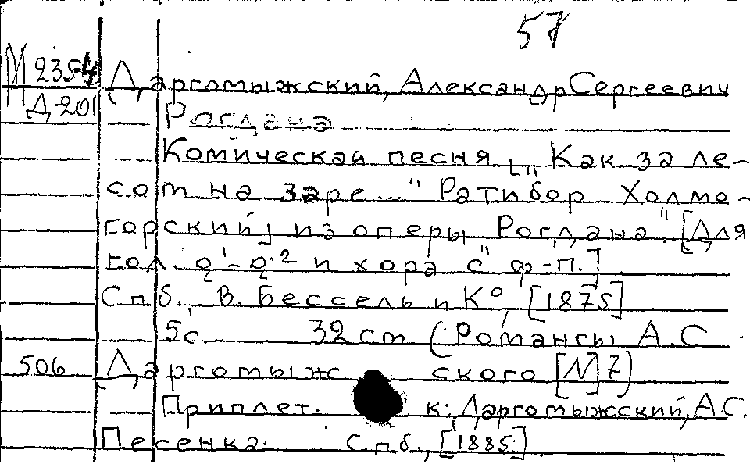 57
М 2354 Даргомыжский, Александр Сергеевич
Д-201 Рогдана
Комическая песня ["Как за ле-
сом на заре..." Ратибор Холмо-
горский] из оперы "Рогдана". [Для
гол. и хора с ф-п.]
Спб., В. Бессель и К°, [1875]
5с 32 cm (Романсы А.С.
506 Даргомыжского [N]7)
Приплет. к: Даргомыжский, А.С.
Песенка. Спб., [1885.]